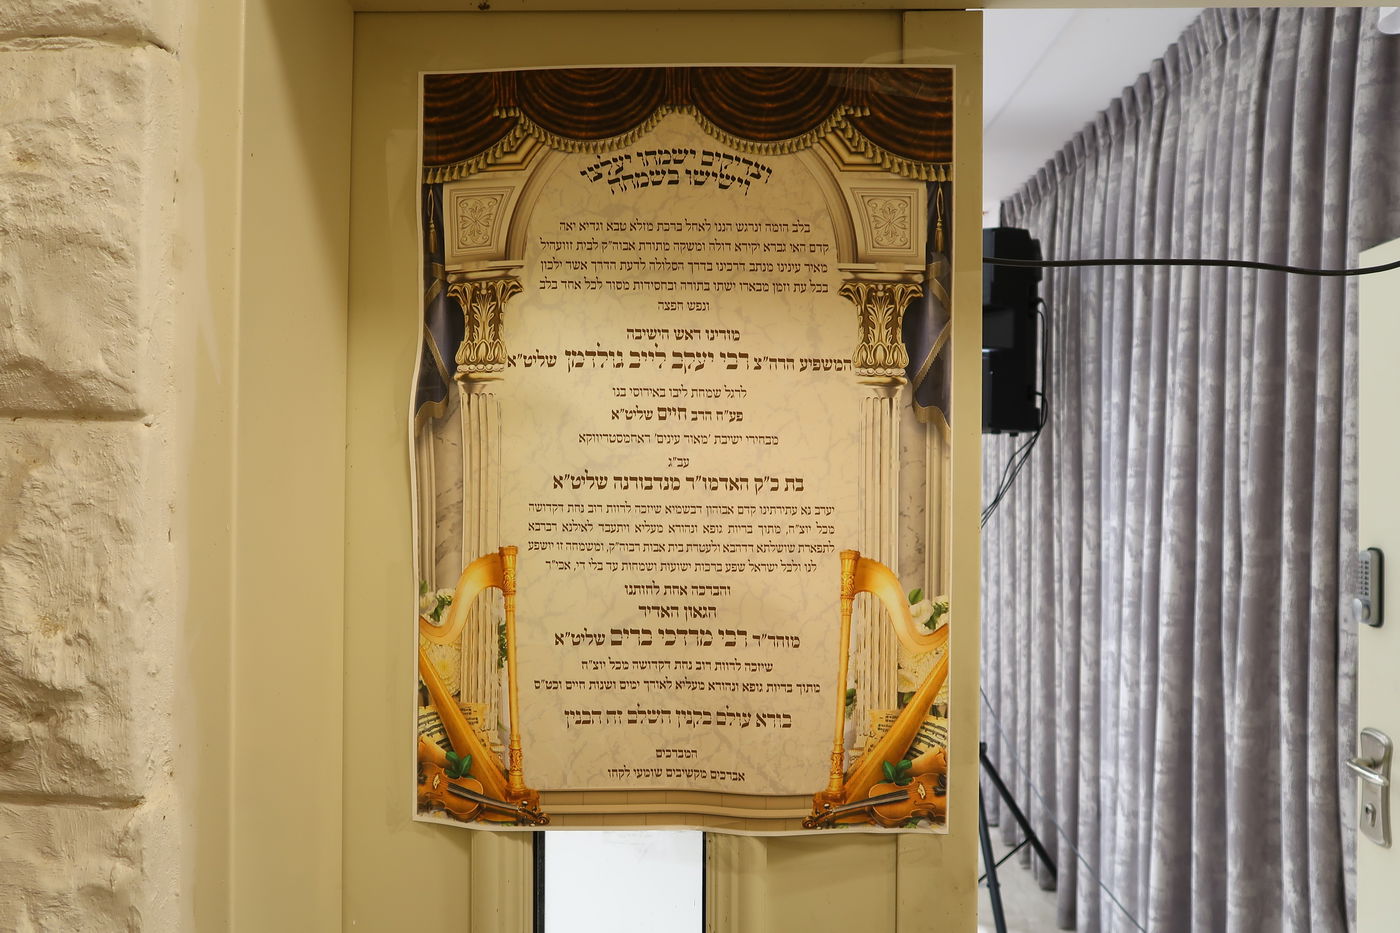 וצדיקים ישמחו יעלצו
וישישו בשמחה
בלב חומה ונרגש הננו לאחל ברכת מזלא טבא וגדיא יאה
קדם האי גברא יקירא דולה ומשקה מתורת אבוה"ק לבית זוועהיל
מאיר עינינו מנתב דרכינו בדרך הסלולה לדעת הדרך אשר ילכון
בכל עת וזמן מבארו ישתו בתורה ובחסידות מסור לכל אחד בלב
ונפש חפצה
מורינו ראש הישיבה
המשפיע הרה"צ רבי יעקב לייב גולדמן שליט"א
לרגל שמחת ליבו באירוסי בנו
פע"ח הרב חיים שליט"א
מבחירי ישיבת 'מאור עינים' דאחמסטריווקא
עב"ג
בת כ"ק האדמו"ר מנדבורנה שליט"א
יערב נא עתירתינו קדם אבוהון דבשמיא שיזכה לרוות רוב נחת דקדושה
מכל יוצ"ח, מתוך בריות גופא ונהורא מעליא ויתעבד לאילנא רברבא
לתפארת שושלתא דדהבא ולעטרת בית אבות רבוה"ק, ומשמחה זו יושפע
לנו ולכל ישראל שפע ברכות ישועות ושמחות עד בלי די, אכי"ר
והברכה אחת לחותנו
הגאון האדיר
מוהר"ר רבי מרדכי ברים שליט"א
שיזכה לרוות רוב נחת דקדושה מכל יוצ"ח
מתוך בריות גופא ונהורא מעליא לאורך ימים ושנות חיים וכט"ס
בורא עולם בקנין השלם זה הבנין
המברכים
אברכים מקשיבים שומעי לקחו